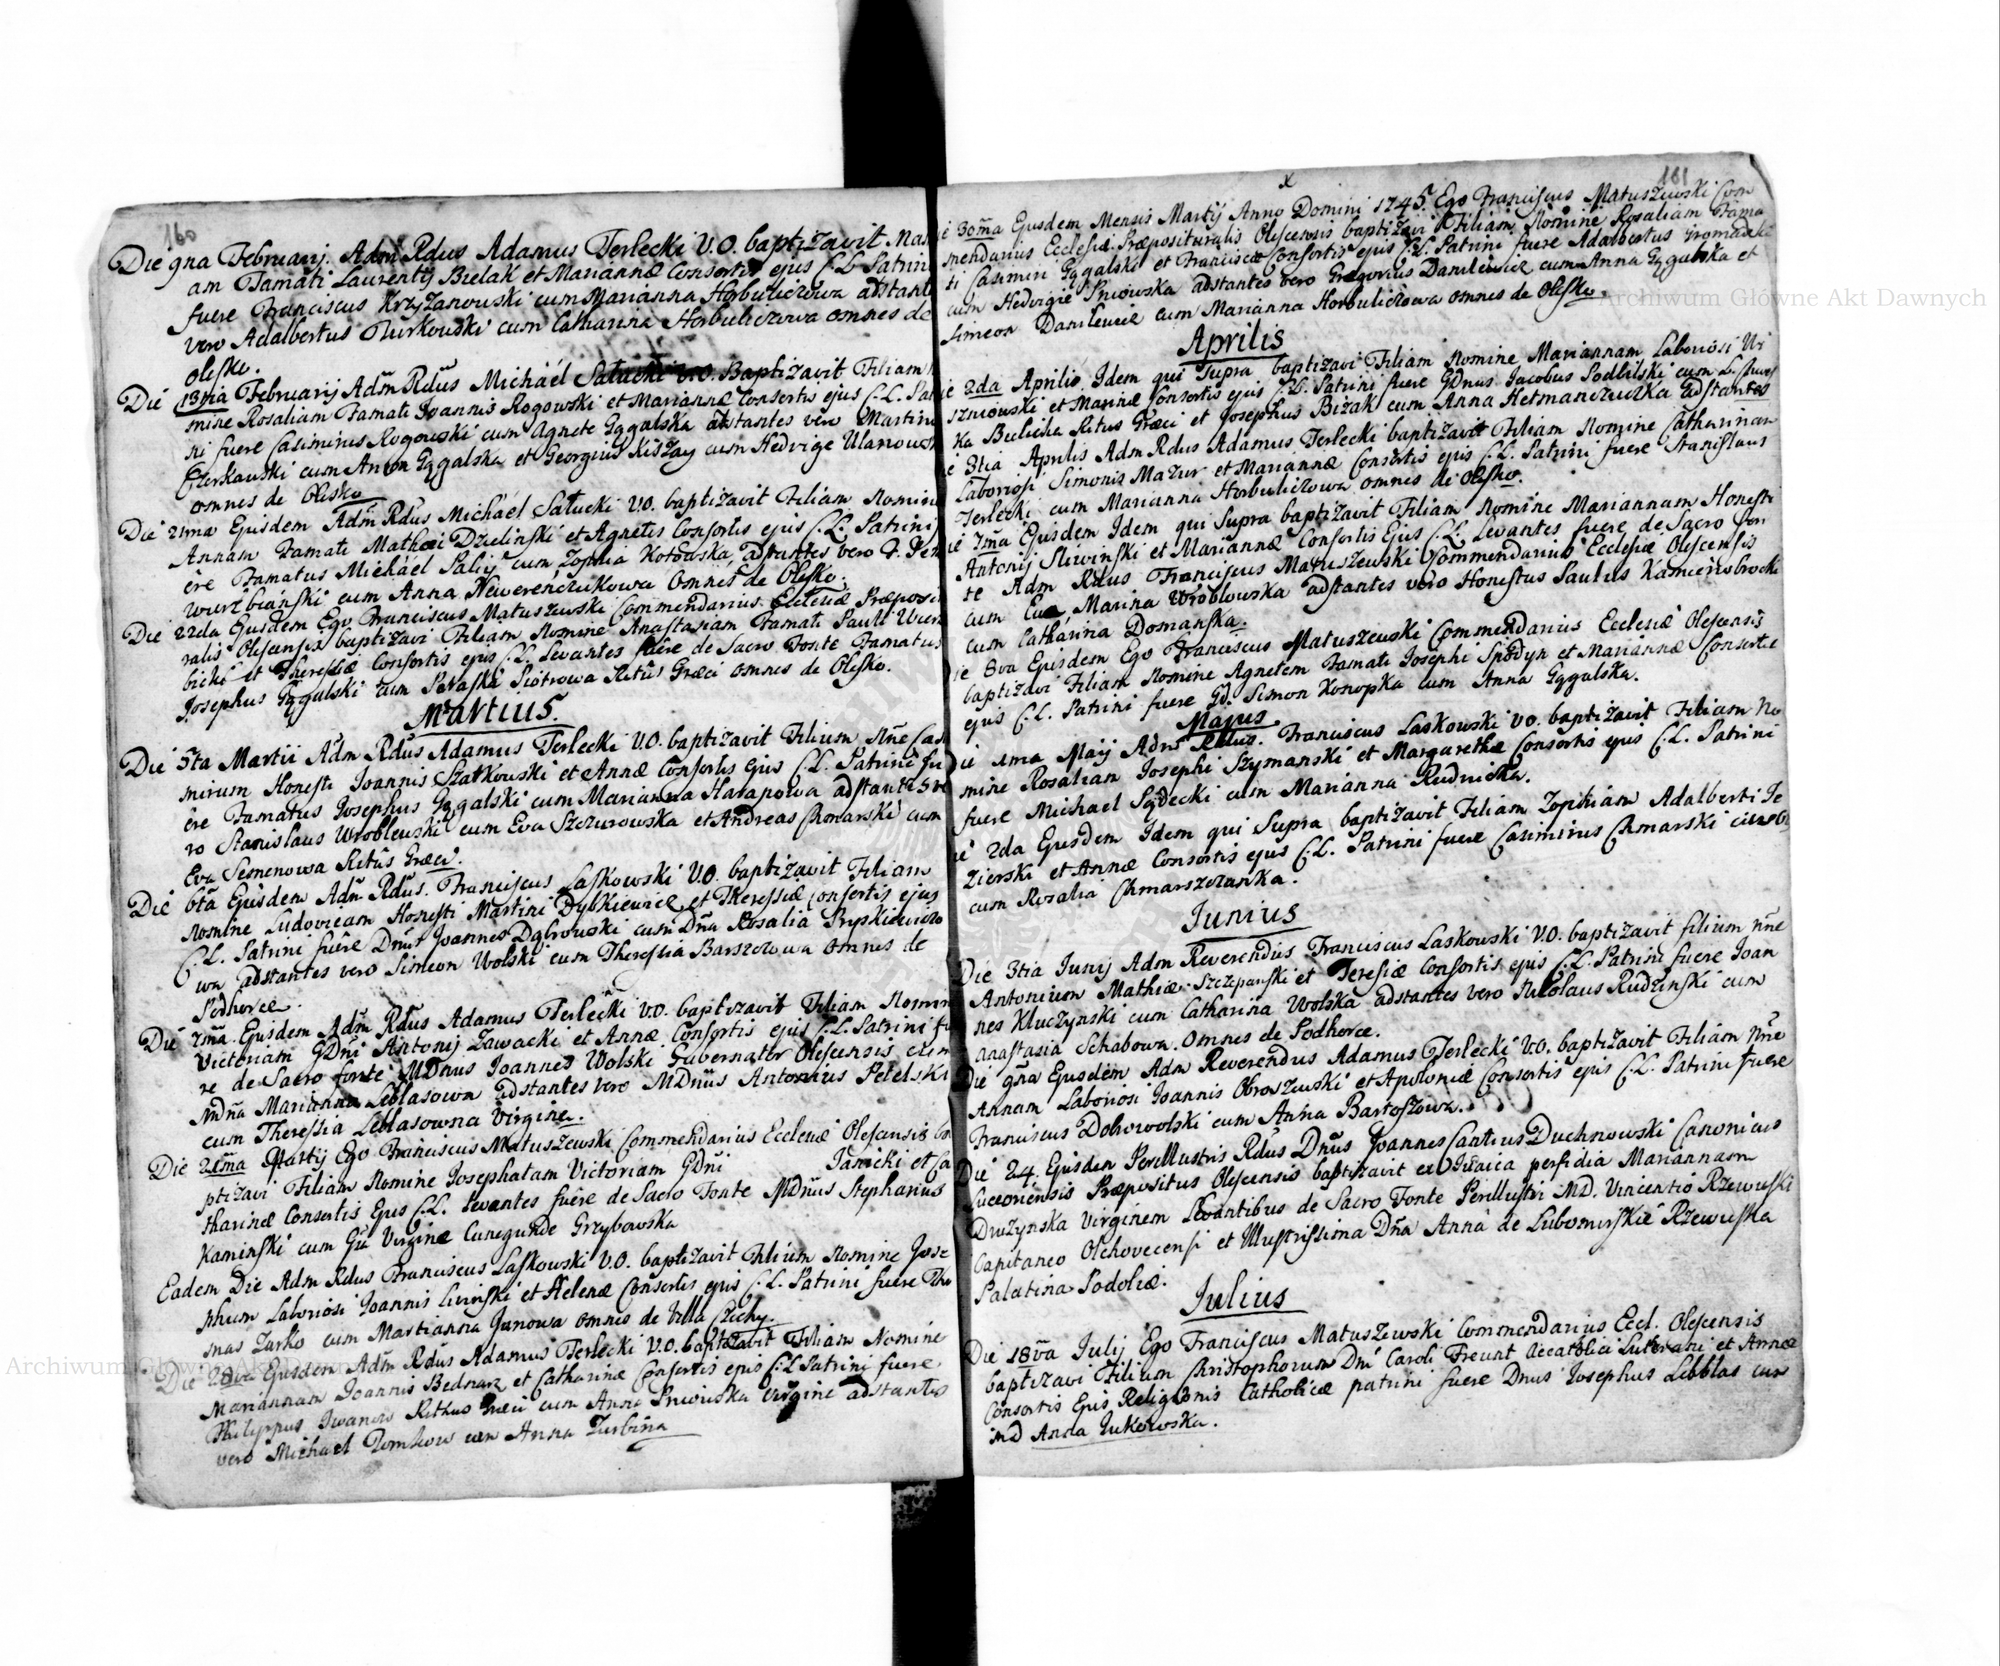 160
Die 9na Februarij. Adm Rdus Adamus Terlecki V.O. baptizavit
am Famati Laurentij Bielak et Mariannæ Consortis ejus C.L. Patrini
fuere Franciscus Krzyżanowski cum Marianna Horbuliczowa adstante
vero Adalbertus Turkowski cum Catharina Horbuliczowa omnes de
olesko.
Die 13tia Februarij Adm Rdus Michaël Satucki V.O. Baptizavit Filiam
mine Rosaliam Famati Joannis Rogowski et Mariannæ Consortis ejus C.L.
ni fuere Casimirus Rogowski cum Agnete Gągalska adstantes vero Martinus
cum Anna Gągalska et Georgius Kiszay cum Hedvige
omnes de Olesko
Die 21ma Ejusdem Adm Rdus Michaël Satucki V.O. baptizavit Filiam Nomine
Annam Famati Mathæi Dzielinski et Agnetis Consortis ejus C.L. Patrini
ere Famatus Michaël Salij cum Zophia Kotowska, adstantes vero
cum Anna Newereńczukowa Omnes de Olesko.
Die 22da Ejusdem Ego Franciscus Matuszewski Commendarius Ecclesiæ Præposi
ralis Olescensis baptizavi Filiam Nomine Anastasiam Famati Pauli
bicki et Theressiæ Consortis ejus C.L. Levantes fuere de Sacro Fonte Famatus
Josephus Gągalski cum Piotrowa Ritûs Græci omnes de Olesko.
Martius.
Die 5ta Martii Adm Rdus Adamus Terlecki V.O. baptizavit Filium Nne Casi
mirum Honesti Joannis Szatkowski et Annæ Consortis Ejus C.L. Patrini fu
ere Famatus Josephus Gągalski cum Marianna Harapowa adstantes ve
ro Stanislaus Wroblewski cum Eva Szczurowska et Andreas Chmarski cum
Eva Semenowa Ritûs Græci.
Die 6ta Ejusdem Adm Rdus. Franciscus Laskowski V.O. baptizavit Filiam
Nomine Ludovicam Honesti Martini Dytkiewicz et Theressiæ Consortis ejus
C.L. Patrini fuere Dnus Joannes Dąbrowski cum Dña Rosalia Pryskiewiczo
wa adstantes vero Simeon Wolski cum Theressia Barszczowa omnes de
Podhorce.
Die 7ma Ejusdem Adm Rdus Adamus Terlecki V.O. baptizavit Filiam Nomin
Victoriam GDni Antonij Zawacki et Annæ Consortis ejus C.L. Patrini fu
re de Sacro fonte MDnus Joannes Wolski Gubernator Olescensis cum
MDña Marianna Leblasowa adstantes vero MDnus Antonius Petelski
cum Theressia Leblasowna Virgine.
Die 21ma Martij Ego Franciscus Matuszewski Commendarius Ecclesiæ Olescensis ba
ptizavi Filiam Nomine Josephatam Victoriam GDni Janicki et Ca
tharinæ Consortis Ejus C.L. Levantes fuere de Sacro Fonte MDnus Stephanus
Kaminski cum Virgine Cunegunde Grzybowska
Eadem Die Adm Rdus Franciscus Laskowski V.O. baptizavit Filium Nomine Jose
phum Laboriosi Joannis et Helenæ Consortis ejus C.L. Patrini fuere Tho
mas Zarko cum Martianna Janowa omnes de Villa
Die 28va Ejusdem Adm Rdus Adamus Terlecki V.O. baptizavit Filiam Nomine
Mariannam Joannis Bednarz et Catharinæ Consortis ejus C.L Patrini fuere
Philippus Iwanow Rithus cum Anna Pniowska Virgine adstantes
vero Michael cum Anna
161
30ma Ejusdem Mensis Martij Anno Domini 1745 Ego Franciscus Matuszewski Com
mendarius Ecclesiæ Præposituralis Olescensis baptizavi Filiam Nomine Rosaliam Fama
ti Casimiri Gągalski et Franciscæ Consortis ejus C.L. Patrini fuere Adalbertus Gromadzki
cum Hedvigie Pniowska adstantes vero Gregorius Danilewicz cum Anna Gągalska et
Simeon Danilewicz cum Marianna Horbuliczowa omnes de Olesko.
Aprilis
2da Aprilis Idem qui Supra baptizavi Filiam Nomine Mariannam Laboriosi
szniowski et Mariæ Consortis ejus C.L. Patrini fuere GDnus Jacobus Podbilski cum
ka Ritus Græci et Josephus Bizak cum Anna Hetmanczuczka adstantes
3tia Aprilis Adm Rdus Adamus Terlecki baptizavit Filiam Nomine Catharinam
Laboriosi Simonis Mazur et Mariannæ Consortis ejus C.L. Patrini fuere Stanislaus
Terlecki cum Marianna Horbuliczowa omnes de Olesko.
7ma Ejusdem Idem qui Supra baptizavit Filiam Nomine Mariannam Honesti
Antonij Sliwinski et Mariannæ Consortis Ejus C.L. Levantes fuere de Sacro Fon
te Adm Rdus Franciscus Matuszewski Commendarius Ecclesiæ Olescensis
cum Eva Marina Wroblowska adstantes vero Honestus Paulus Kamienobrocki
cum Catharina Domanska.
8va Ejusdem Ego Franciscus Matuszewski Commendarius Ecclesiæ Olescensis
baptizavi Filiam Nomine Agnetem Famati Josephi Spodyn et Mariannæ Consortis
ejus C.L. Patrini fuere GD. Simon Konopka cum Anna Gągalska.
Majus
1ma Maij Adm Rdus. Franciscus Laskowski V.O. baptizavit Filiam No
mine Rosaliam Josephi Szymanski et Margarethæ Consortis ejus C.L. Patrini
fuere Michael Sędecki cum Marianna Rudnicka.
2da Ejusdem Idem qui Supra baptizavit Filiam Zophiam Adalberti Je
zierski et Annæ Consortis ejus C.L. Patrini fuere Casimirus Chmarski
cum Rosalia Chmarszczanka.
Junius
Die 3tia Junij Adm Reverendus Franciscus Laskowski V.O. baptizavit filium nne
Antonium Mathiæ Szczepanski et Teresiæ Consortis ejus C.L. Patrini fuere Joan
nes Kluczynski cum Catharina Wolska adstantes vero Nicolaus Rudzinski cum
Anastasia Schabowa. Omnes de Podhorce.
Die 9na Ejusdem Adm Reverendus Adamus Terlecki V.O. baptizavit Filiam Nne
Annam Laboriosi Joannis Obroszewski et Apoloniæ Consortis ejus C.L. Patrini fuere
Franciscus Dobrowolski cum Anna Bartoszowa.
Die 24 Ejusdem Perillustris Rdus Dnus Joannes Cantius Duchnowski Canonicus
Luceoriensis Præpositus Olescensis baptizavit ex Judaica perfidia Mariannam
Druzynska Virginem Levantibus de Sacro Fonte Perillustri MD. Vincentio Rzewuski
Capitaneo Olchovecensi et Illustrissima Dña Anna de Lubomirskie Rzewuska
Palatina Podoliæ.
Julius
Die 18va Julij Ego Franciscus Matuszewski Commendarius Eccl. Olescensis
baptizavi Filium Christophorum Dni Caroli Freunt Accatolici Luterani et Annæ
Consortis Ejus Religionis Catholicæ patrini fuere Dnus Josephus Lebblas cum
MD Anna Zukowska.
Archiwum Główne Akt Dawnych